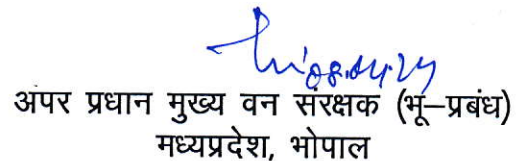 08.04.24
अपर प्रधान मुख्य वन संरक्षक (भू–प्रबंध)
मध्यप्रदेश, भोपाल